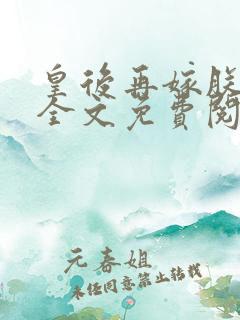 皇後再嫁朕
全文免費閱
元春姐
未经同意禁止转载